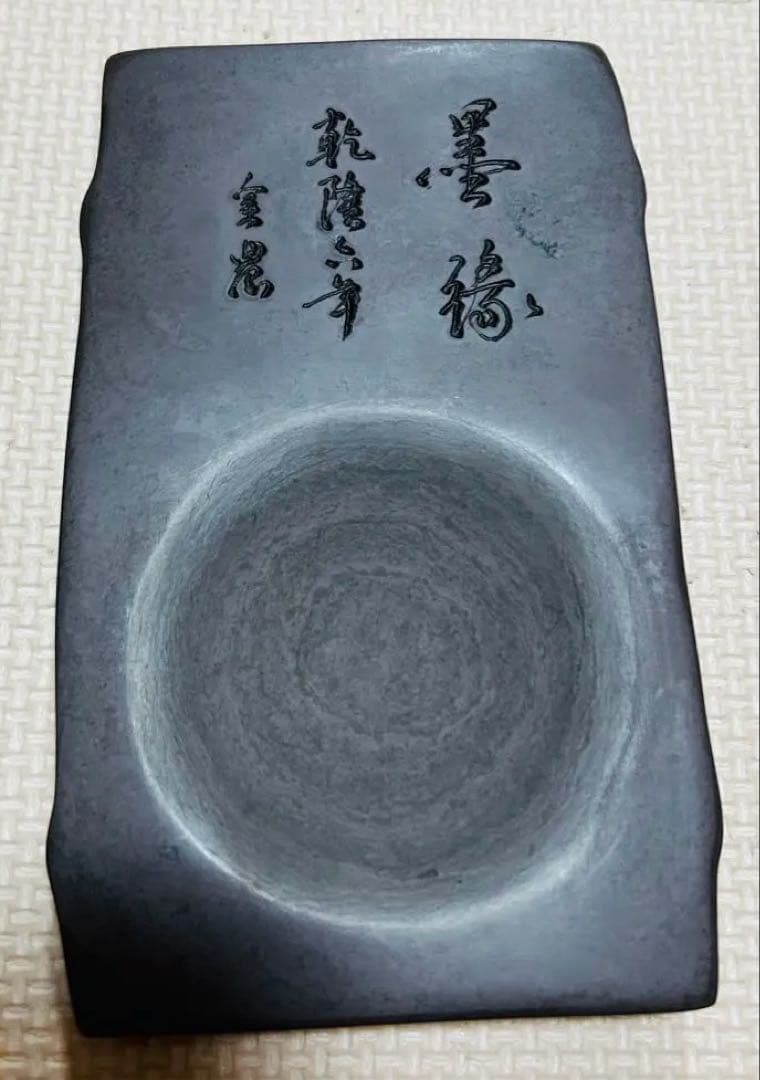 墨緣
乾隆六年
金農